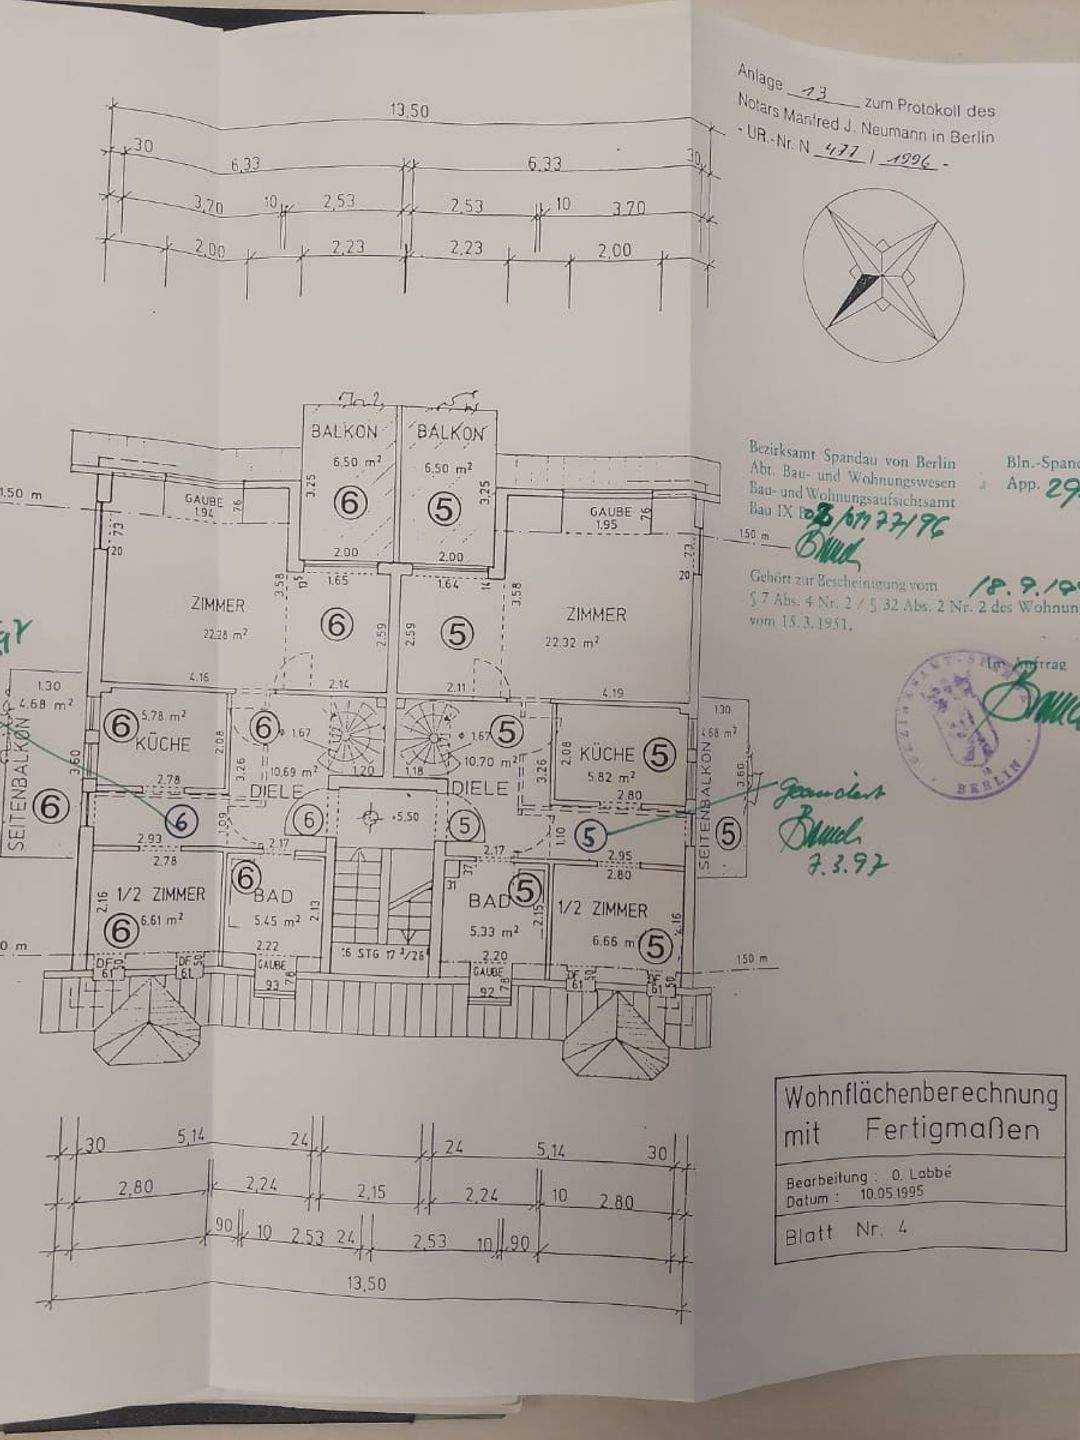 Anlage 13 zum Protokoll des
Notars Manfred J. Neumann in Berlin
- UR.-Nr. N 477 / 1996 -
13,50
30 6,33 6,33 30
3,70 10 2,53 2,53 10 3,70
2,00 2,23 2,23 2,00
Bezirksamt Spandau von Berlin
Abt. Bau- und Wohnungswesen
Bau- und Wohnungsaufsichtsamt
Bau IX
Bln.-Spand
App. 29
Gehört zur Bescheinigung vom 18.9.19
§ 7 Abs. 4 Nr. 2 / § 32 Abs. 2 Nr. 2 des Wohnun
vom 15.3.1951.
Im Auftrag
BEZIRKSAMT
BERLIN
BALKON BALKON
6,50 m² 6,50 m²
3,25 6 5 3,25
2,00 2,00
1,50 m
GAUBE
1.94 76
GAUBE
1.95 76
1.50 m
73 20
73 20
1.65 1.64
3,58 3,58
ZIMMER
22.28 m²
6 2,59 2,59 5
ZIMMER
22.32 m²
4.16 2.14 2.11 4.19
1.30
4.68 m²
SEITENBALKON
6
3,60
6 5,78 m²
KÜCHE
2,08
2.78
6 ⌀ 1.67
3,26 10,69 m² 1.20
DIELE
5 ⌀ 1.67
1.18 10,70 m² 3,26
DIELE
2,08 KÜCHE 5
5.82 m²
2.80
1.30
4,68 m²
3,60
SEITENBALKON
5
6 1,09 6 +5,50 5 1,10 5
geändert
7.3.97
2.93 2.17 2.17 2.95
2.78 2.80
2.16 1/2 ZIMMER
6 6.61 m²
6
BAD
5.45 m² 2.13
2.22
16 STG 17³/26
31 37
BAD 5
5.33 m² 2.15
2.20
1/2 ZIMMER
6.66 m 5
2.16
0 m 1.50 m
DF 50
61
DF 50
61
GAUBE
93 78
GAUBE
92 78
DF 50
61
DF 50
61
30 5,14 24 24 5,14 30
2,80 2,24 2,15 2,24 10 2.80
90 10 2.53 24 2,53 10 90
13,50
Wohnflächenberechnung
mit Fertigmaßen
Bearbeitung : O. Labbé
Datum : 10.05.1995
Blatt Nr. 4